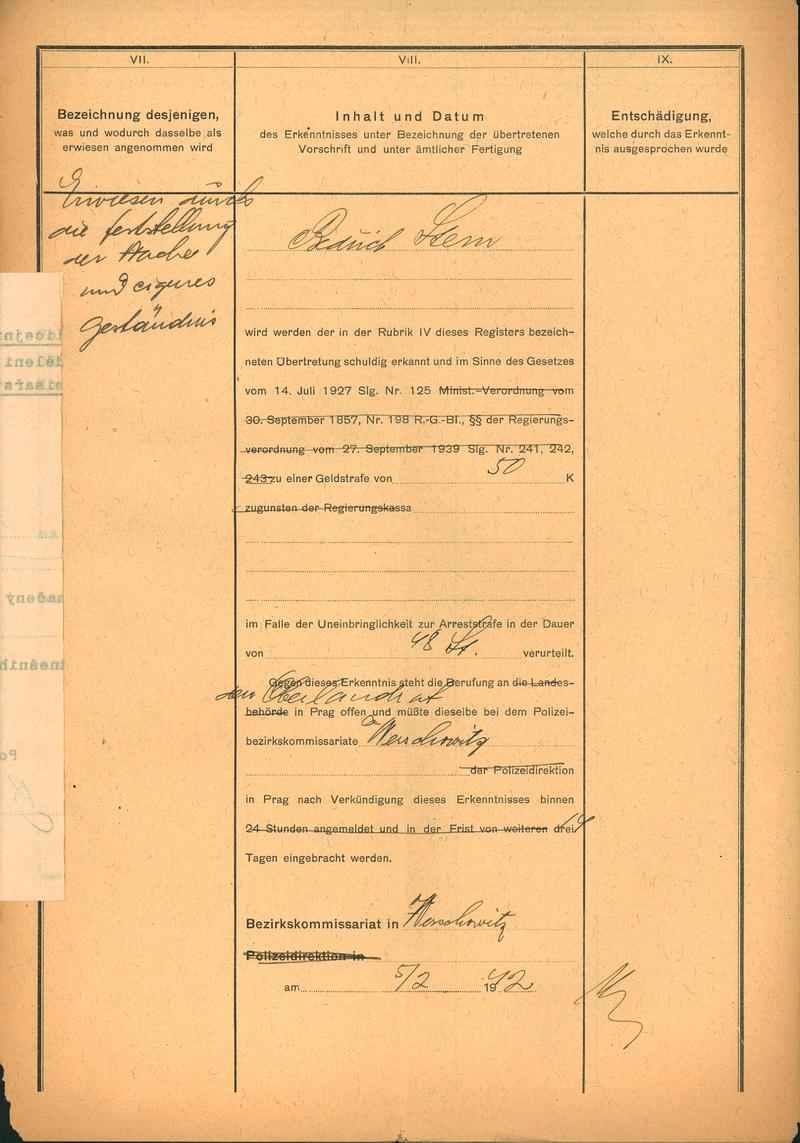 VII.
Bezeichnung desjenigen,
was und wodurch dasselbe als
erwiesen angenommen wird
Erwiesen durch
die feststellung
der Wache
und eigenes
Geständnis
VIII.
Inhalt und Datum
des Erkenntnisses unter Bezeichnung der übertretenen
Vorschrift und unter ämtlicher Fertigung
Bedřich Stern
wird werden der in der Rubrik IV dieses Registers bezeich-
neten Übertretung schuldig erkannt und im Sinne des Gesetzes
vom 14. Juli 1927 Slg. Nr. 125 Minist.-Verordnung vom
30. September 1857, Nr. 198 R.-G.-Bl., §§ der Regierungs-
verordnung vom 27. September 1939 Slg. Nr. 241, 242,
243 zu einer Geldstrafe von 50 K
zugunsten der Regierungskassa
im Falle der Uneinbringlichkeit zur Arreststrafe in der Dauer
von 48 St. verurteilt.
Gegen dieses Erkenntnis steht die Berufung an die Landes-
den Oberlandrat
behörde in Prag offen und müßte dieselbe bei dem Polizei-
bezirkskommissariate Werschowitz
der Polizeidirektion
in Prag nach Verkündigung dieses Erkenntnisses binnen
24 Stunden angemeldet und in der Frist von weiteren drei 14
Tagen eingebracht werden.
Bezirkskommissariat in Werschowitz
Polizeidirektion in
am 5/2 1942
IX.
Entschädigung,
welche durch das Erkennt-
nis ausgesprochen wurde